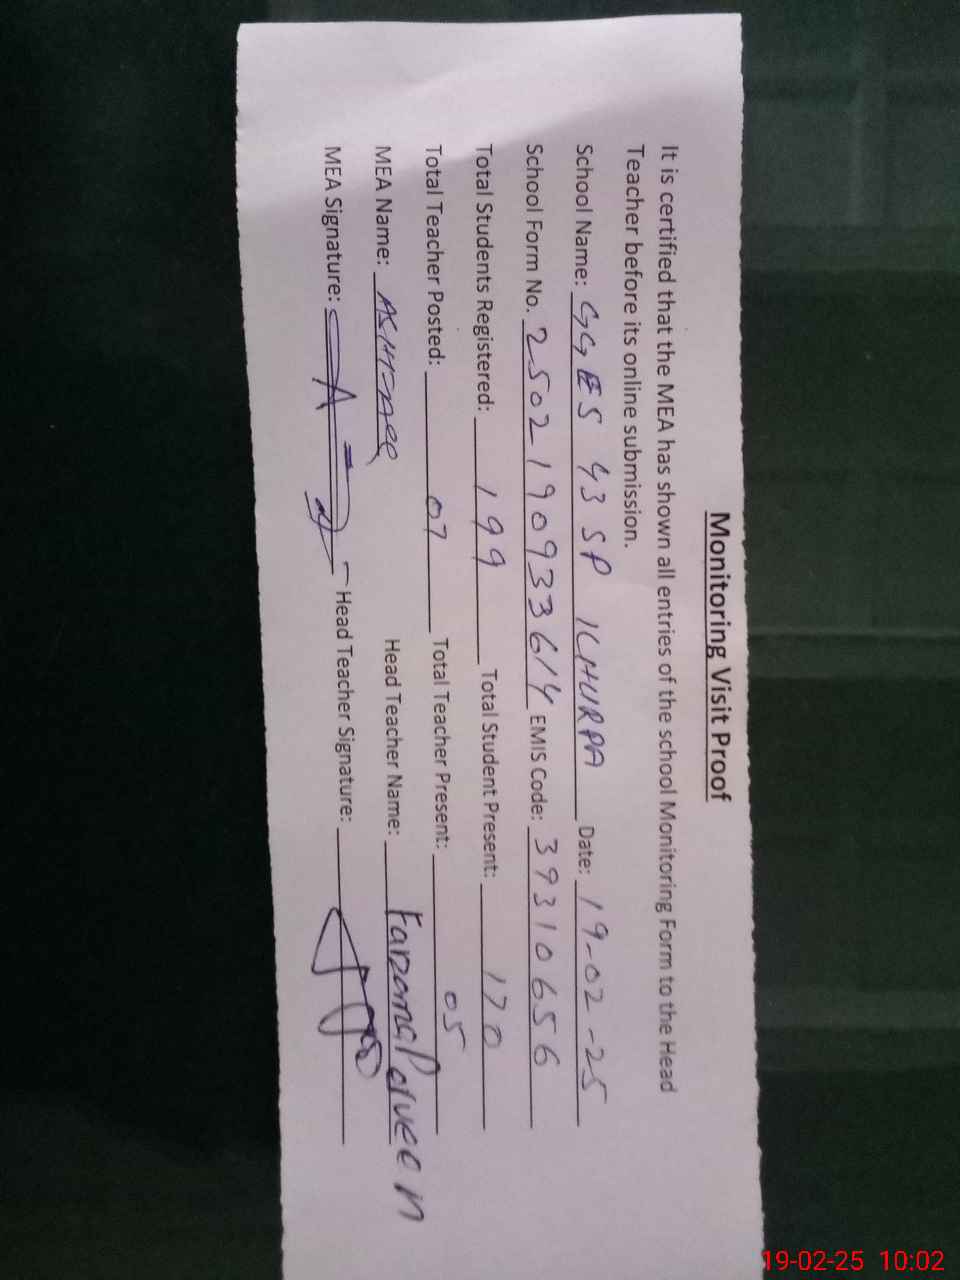 Monitoring Visit Proof
It is certified that the MEA has shown all entries of the school Monitoring Form to the Head
Teacher before its online submission.
School Name: GGES 43 SP KHURPA Date: 19-02-25
School Form No. 2502190933614 EMIS Code: 39310656
Total Students Registered: 199 Total Student Present: 170
Total Teacher Posted: 07 Total Teacher Present: 05
MEA Name: Head Teacher Name: Farzana Parveen
MEA Signature: Head Teacher Signature:
19-02-25 10:02